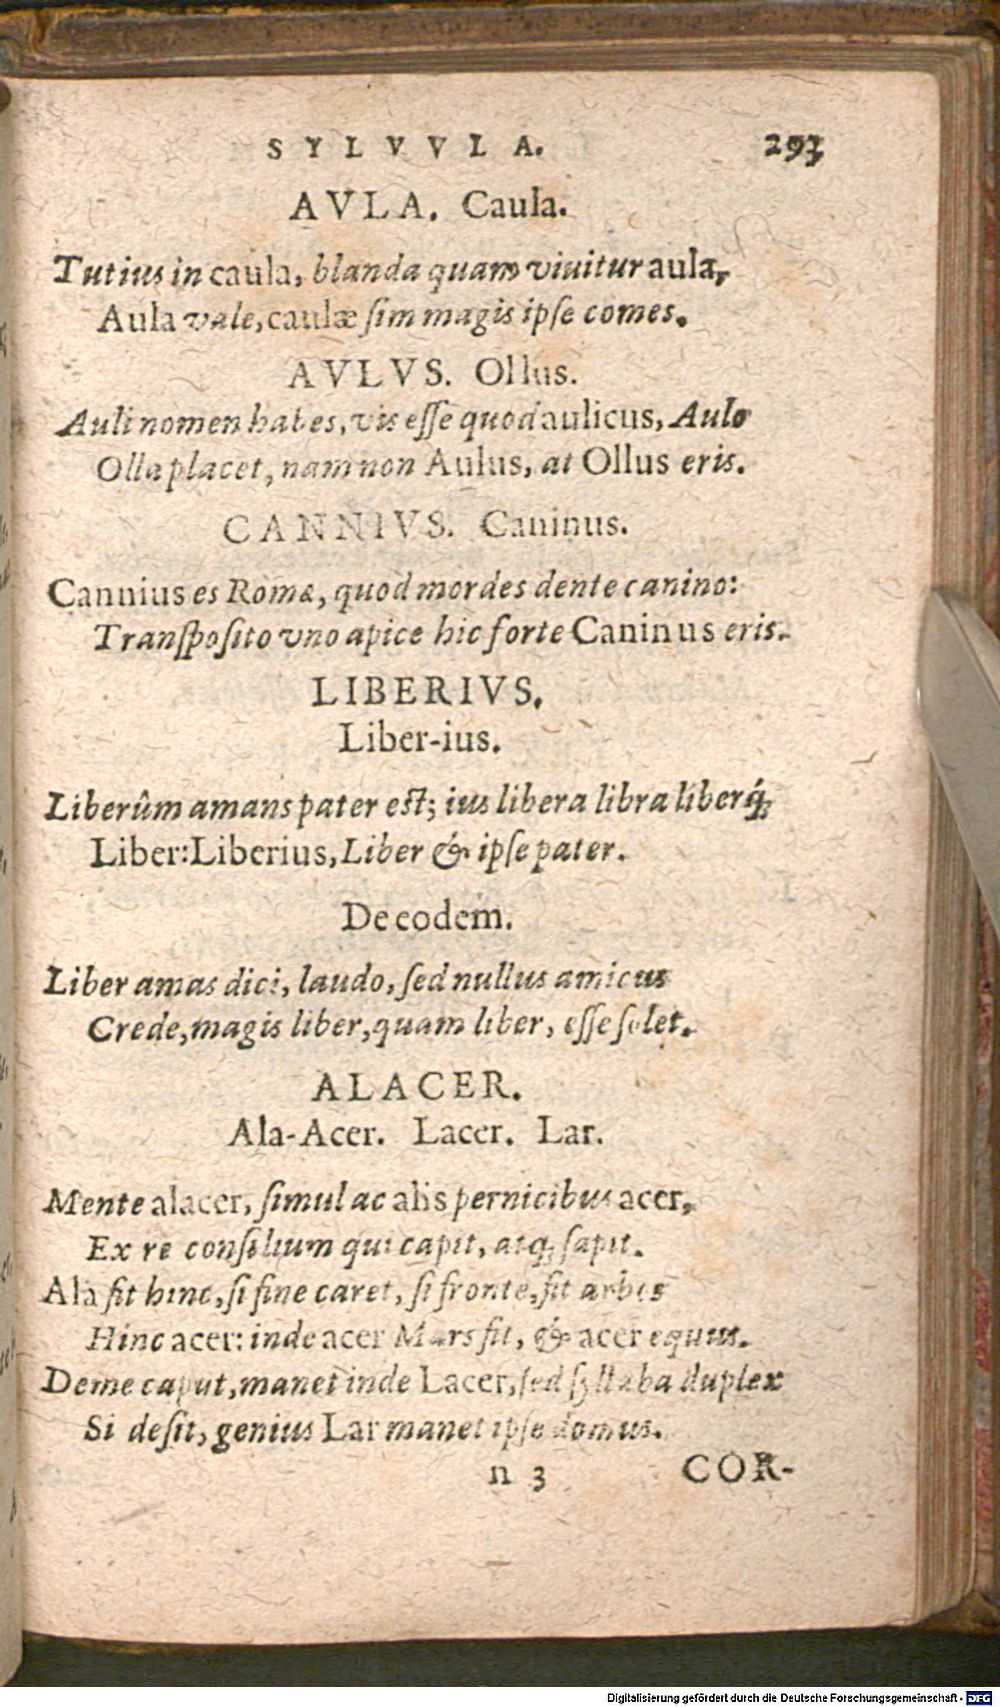 SYLVVLA. 293
AVLA. Caula.
Tutius in caula, blanda quam viuitur aula,
Aula vale, caulæ ſim magis ipſe comes.
AVLVS. Ollus.
Auli nomen habes, vis eſſe quod aulicus, Aulo
Olla placet, nam non Aulus, at Ollus eris.
CANNIVS. Caninus.
Cannius es Romæ, quod mordes dente canino:
Tranſpoſito vno apice hic forte Caninus eris.
LIBERIVS.
Liber-ius.
Liberûm amans pater est; ius libera libra liberq́;
Liber: Liberius, Liber & ipſe pater.
De eodem.
Liber amas dici, laudo, ſed nullus amicus
Crede, magis liber, quam liber, eſſe ſolet.
ALACER.
Ala-Acer. Lacer. Lar.
Mente alacer, ſimul ac alis pernicibus acer,
Ex re conſilium qui capit, atq; ſapit.
Ala fit hinc, ſi fine caret, ſi fronte, fit arbos
Hinc acer: inde acer Mars fit, & acer equus.
Deme caput, manet inde Lacer, ſed ſyllaba duplex
Si deſit, genius Lar manet ipſe domus.
n 3 COR-
Digitalisierung gefördert durch die Deutsche Forschungsgemeinschaft - DFG